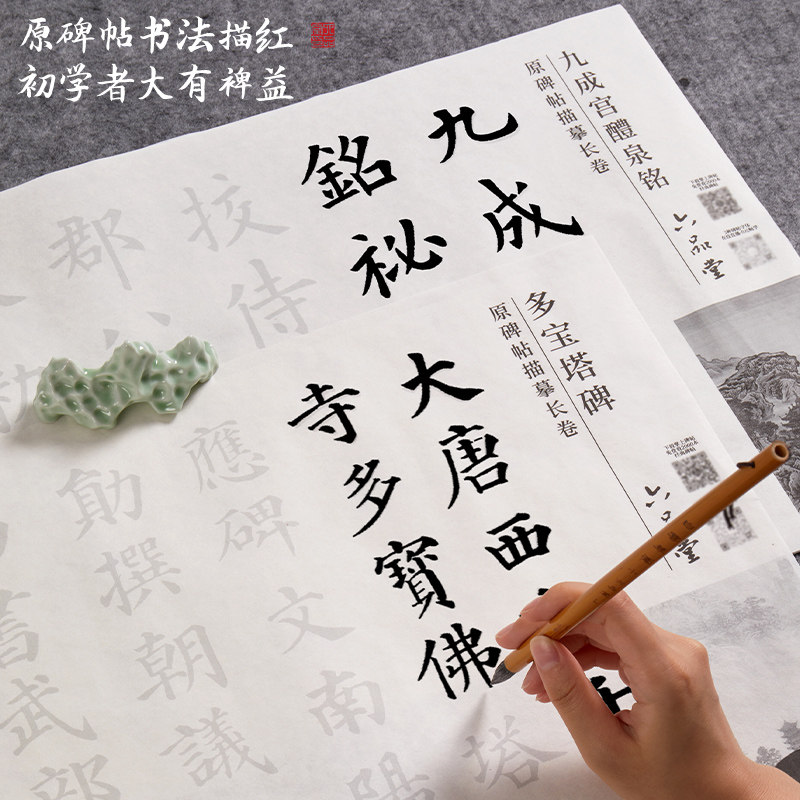 原碑帖书法描红
初学者大有裨益
九成宫醴泉铭
原碑帖描摹长卷
六品堂
九成
銘祕
挍侍
郡公
多宝塔碑
原碑帖描摹长卷
六品堂
大唐西
寺多寶佛塔
應碑文南陽
勛撰朝議
書武部